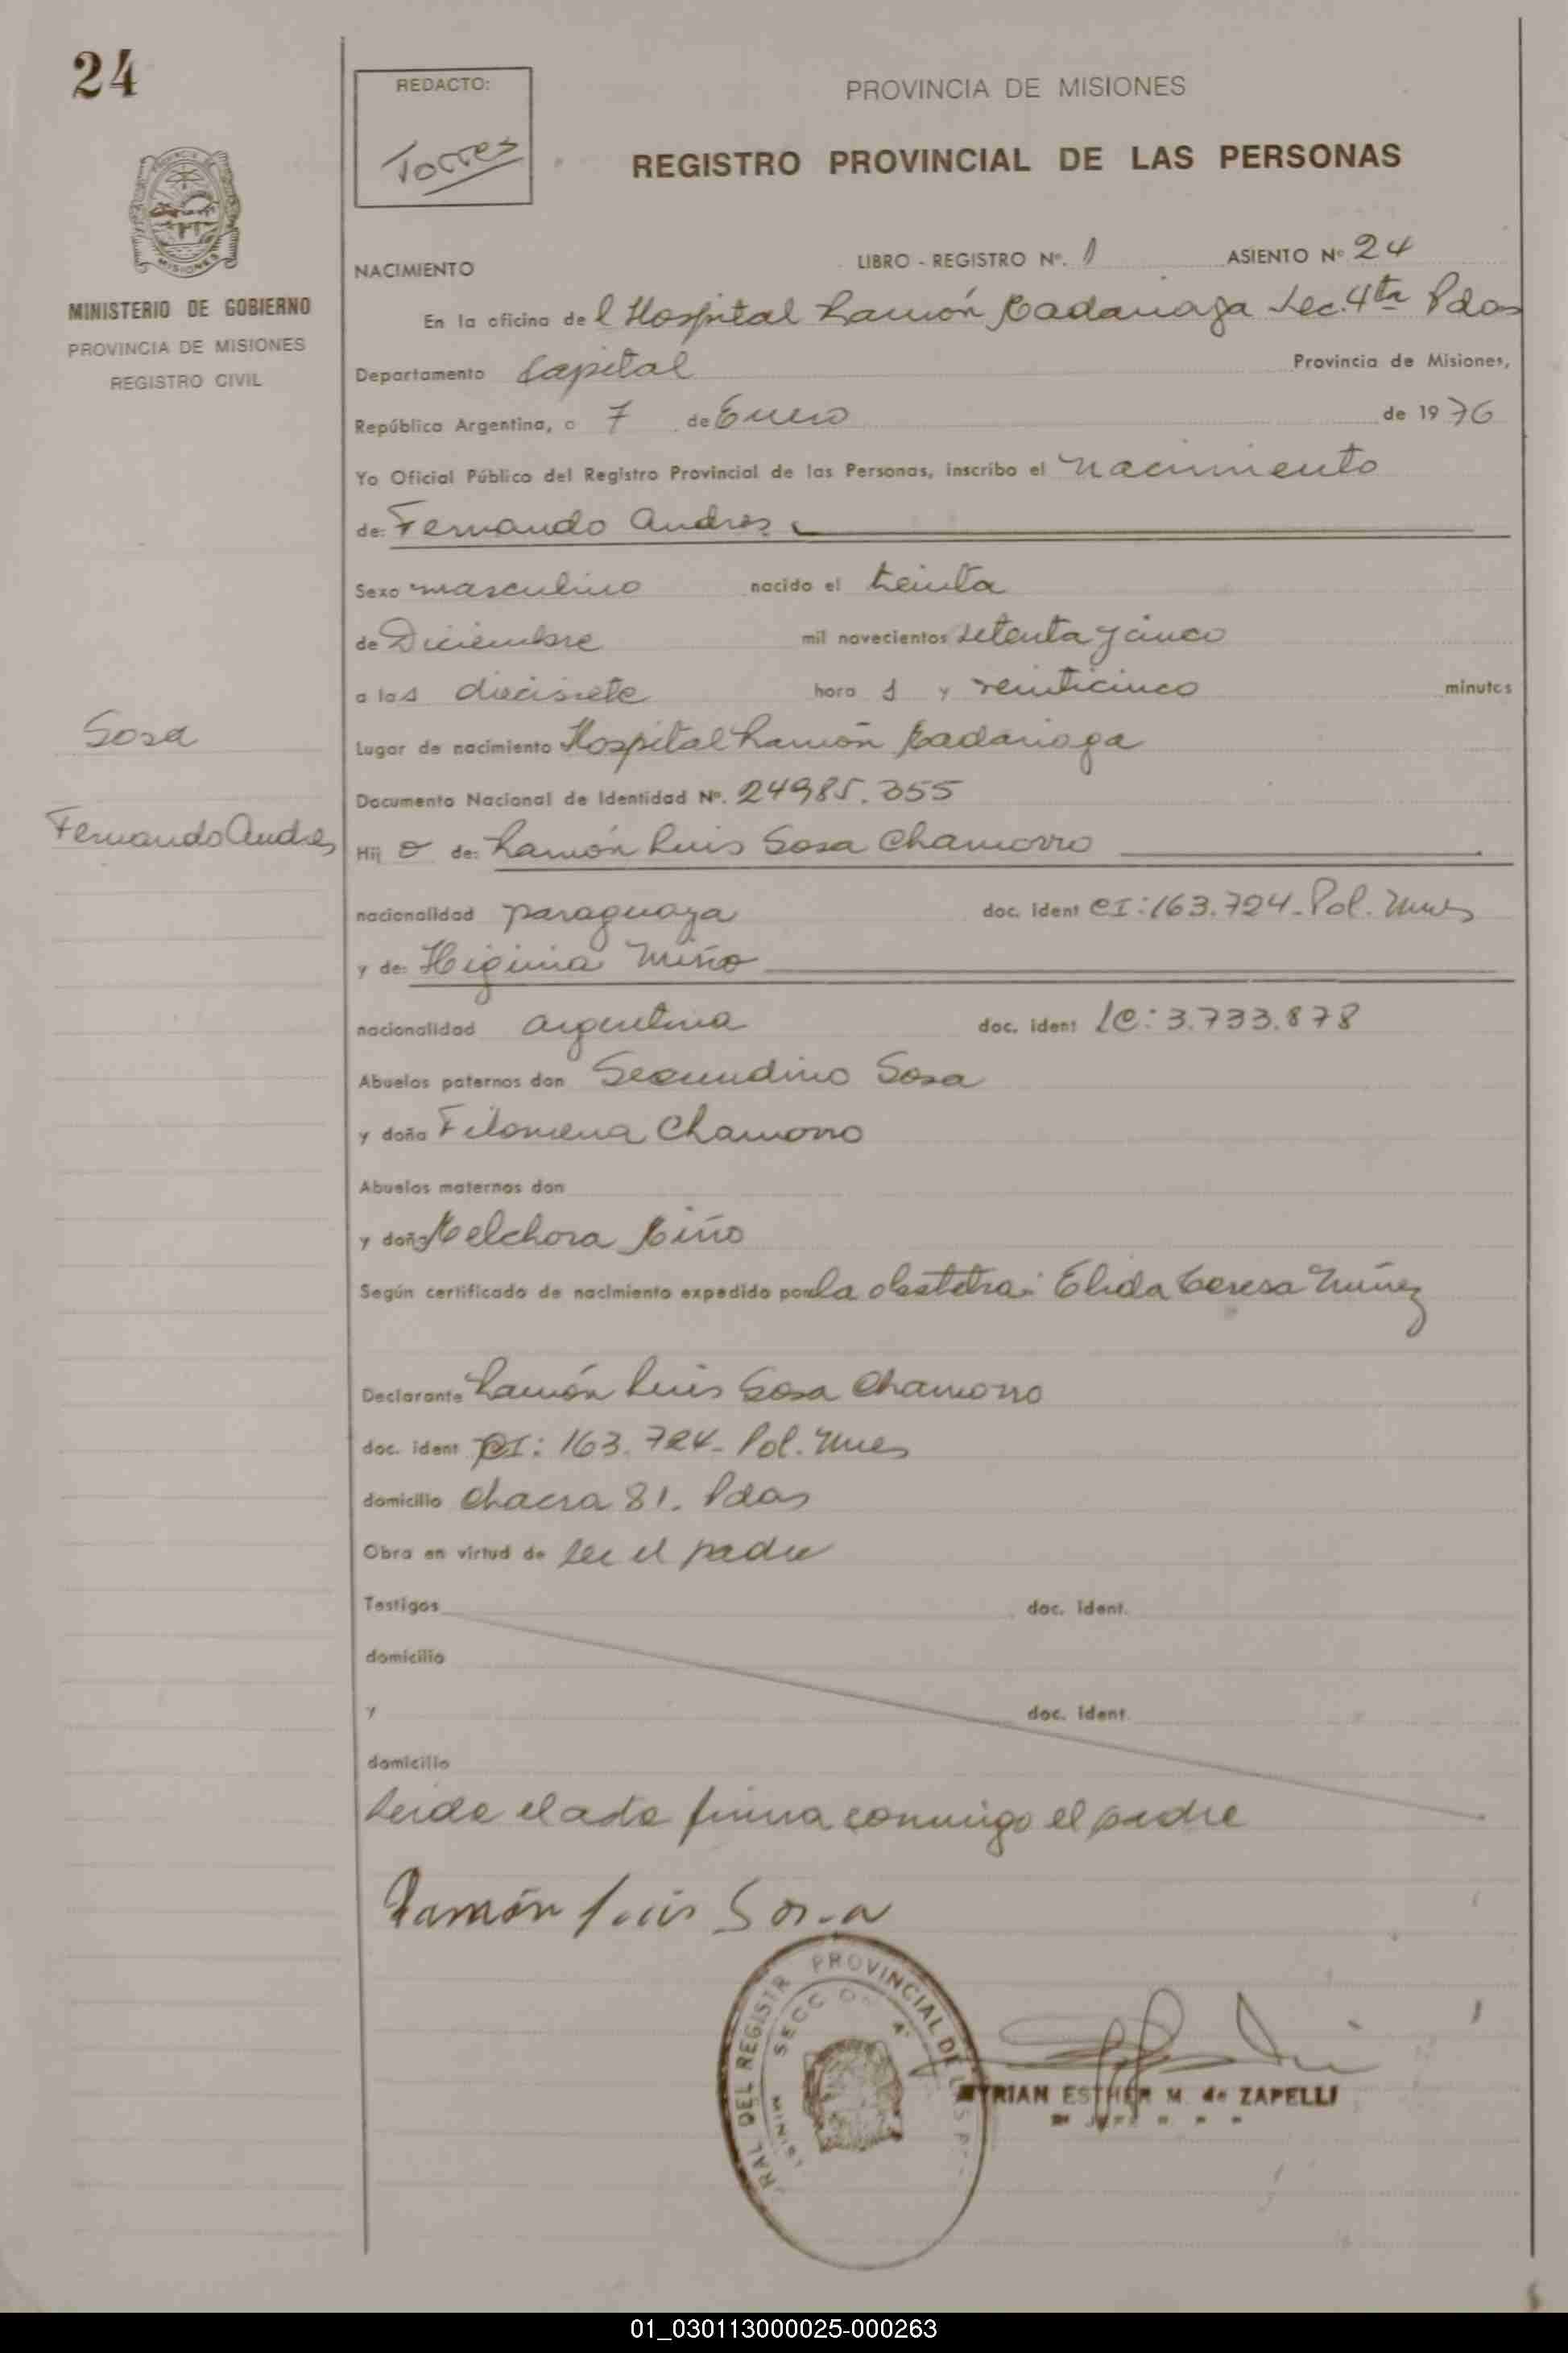 24
REDACTO:
Torres
PROVINCIA DE MISIONES
REGISTRO PROVINCIAL DE LAS PERSONAS
MISIONES
MINISTERIO DE GOBIERNO
PROVINCIA DE MISIONES
REGISTRO CIVIL
NACIMIENTO LIBRO - REGISTRO Nº. 1 ASIENTO Nº 24
En la oficina del Hospital Ramón Madariaga Sec. 4ta Pdas
Departamento Capital Provincia de Misiones,
República Argentina, a 7 de Enero de 1976
Yo Oficial Público del Registro Provincial de las Personas, inscribo el nacimiento
de: Fernando Andres
Sexo masculino nacido el treinta
de Diciembre mil novecientos setenta y cinco
a las diecisiete hora s y veinticinco minutos
Sosa
Lugar de nacimiento Hospital Ramón Madariaga
Documento Nacional de Identidad Nº. 24985.355
Fernando Andres
Hij o de: Ramón Luis Sosa Chamorro
nacionalidad paraguaya doc. ident CI: 163.724- Pol. Mnes
y de: Higinia Miño
nacionalidad argentina doc. ident LC: 3.733.878
Abuelos paternos don Secundino Sosa
y doña Filomena Chamorro
Abuelos maternos don
y doña Melchora Miño
Según certificado de nacimiento expedido por la obstetra: Elida Teresa Núñez
Declarante Ramón Luis Sosa Chamorro
doc. ident CI: 163.724- Pol. Mnes
domicilio Chacra 81. Pdas
Obra en virtud de ser el padre
Testigos doc. ident.
domicilio
y doc. ident.
domicilio
Leida el acta firma conmigo el padre
Ramón Luis Sosa
RAL DEL REGISTR PROVINCIAL DE L S P
SECC 4ª
MINIS
MYRIAN ESTHER M. de ZAPELLI
JEFE
01_030113000025-000263